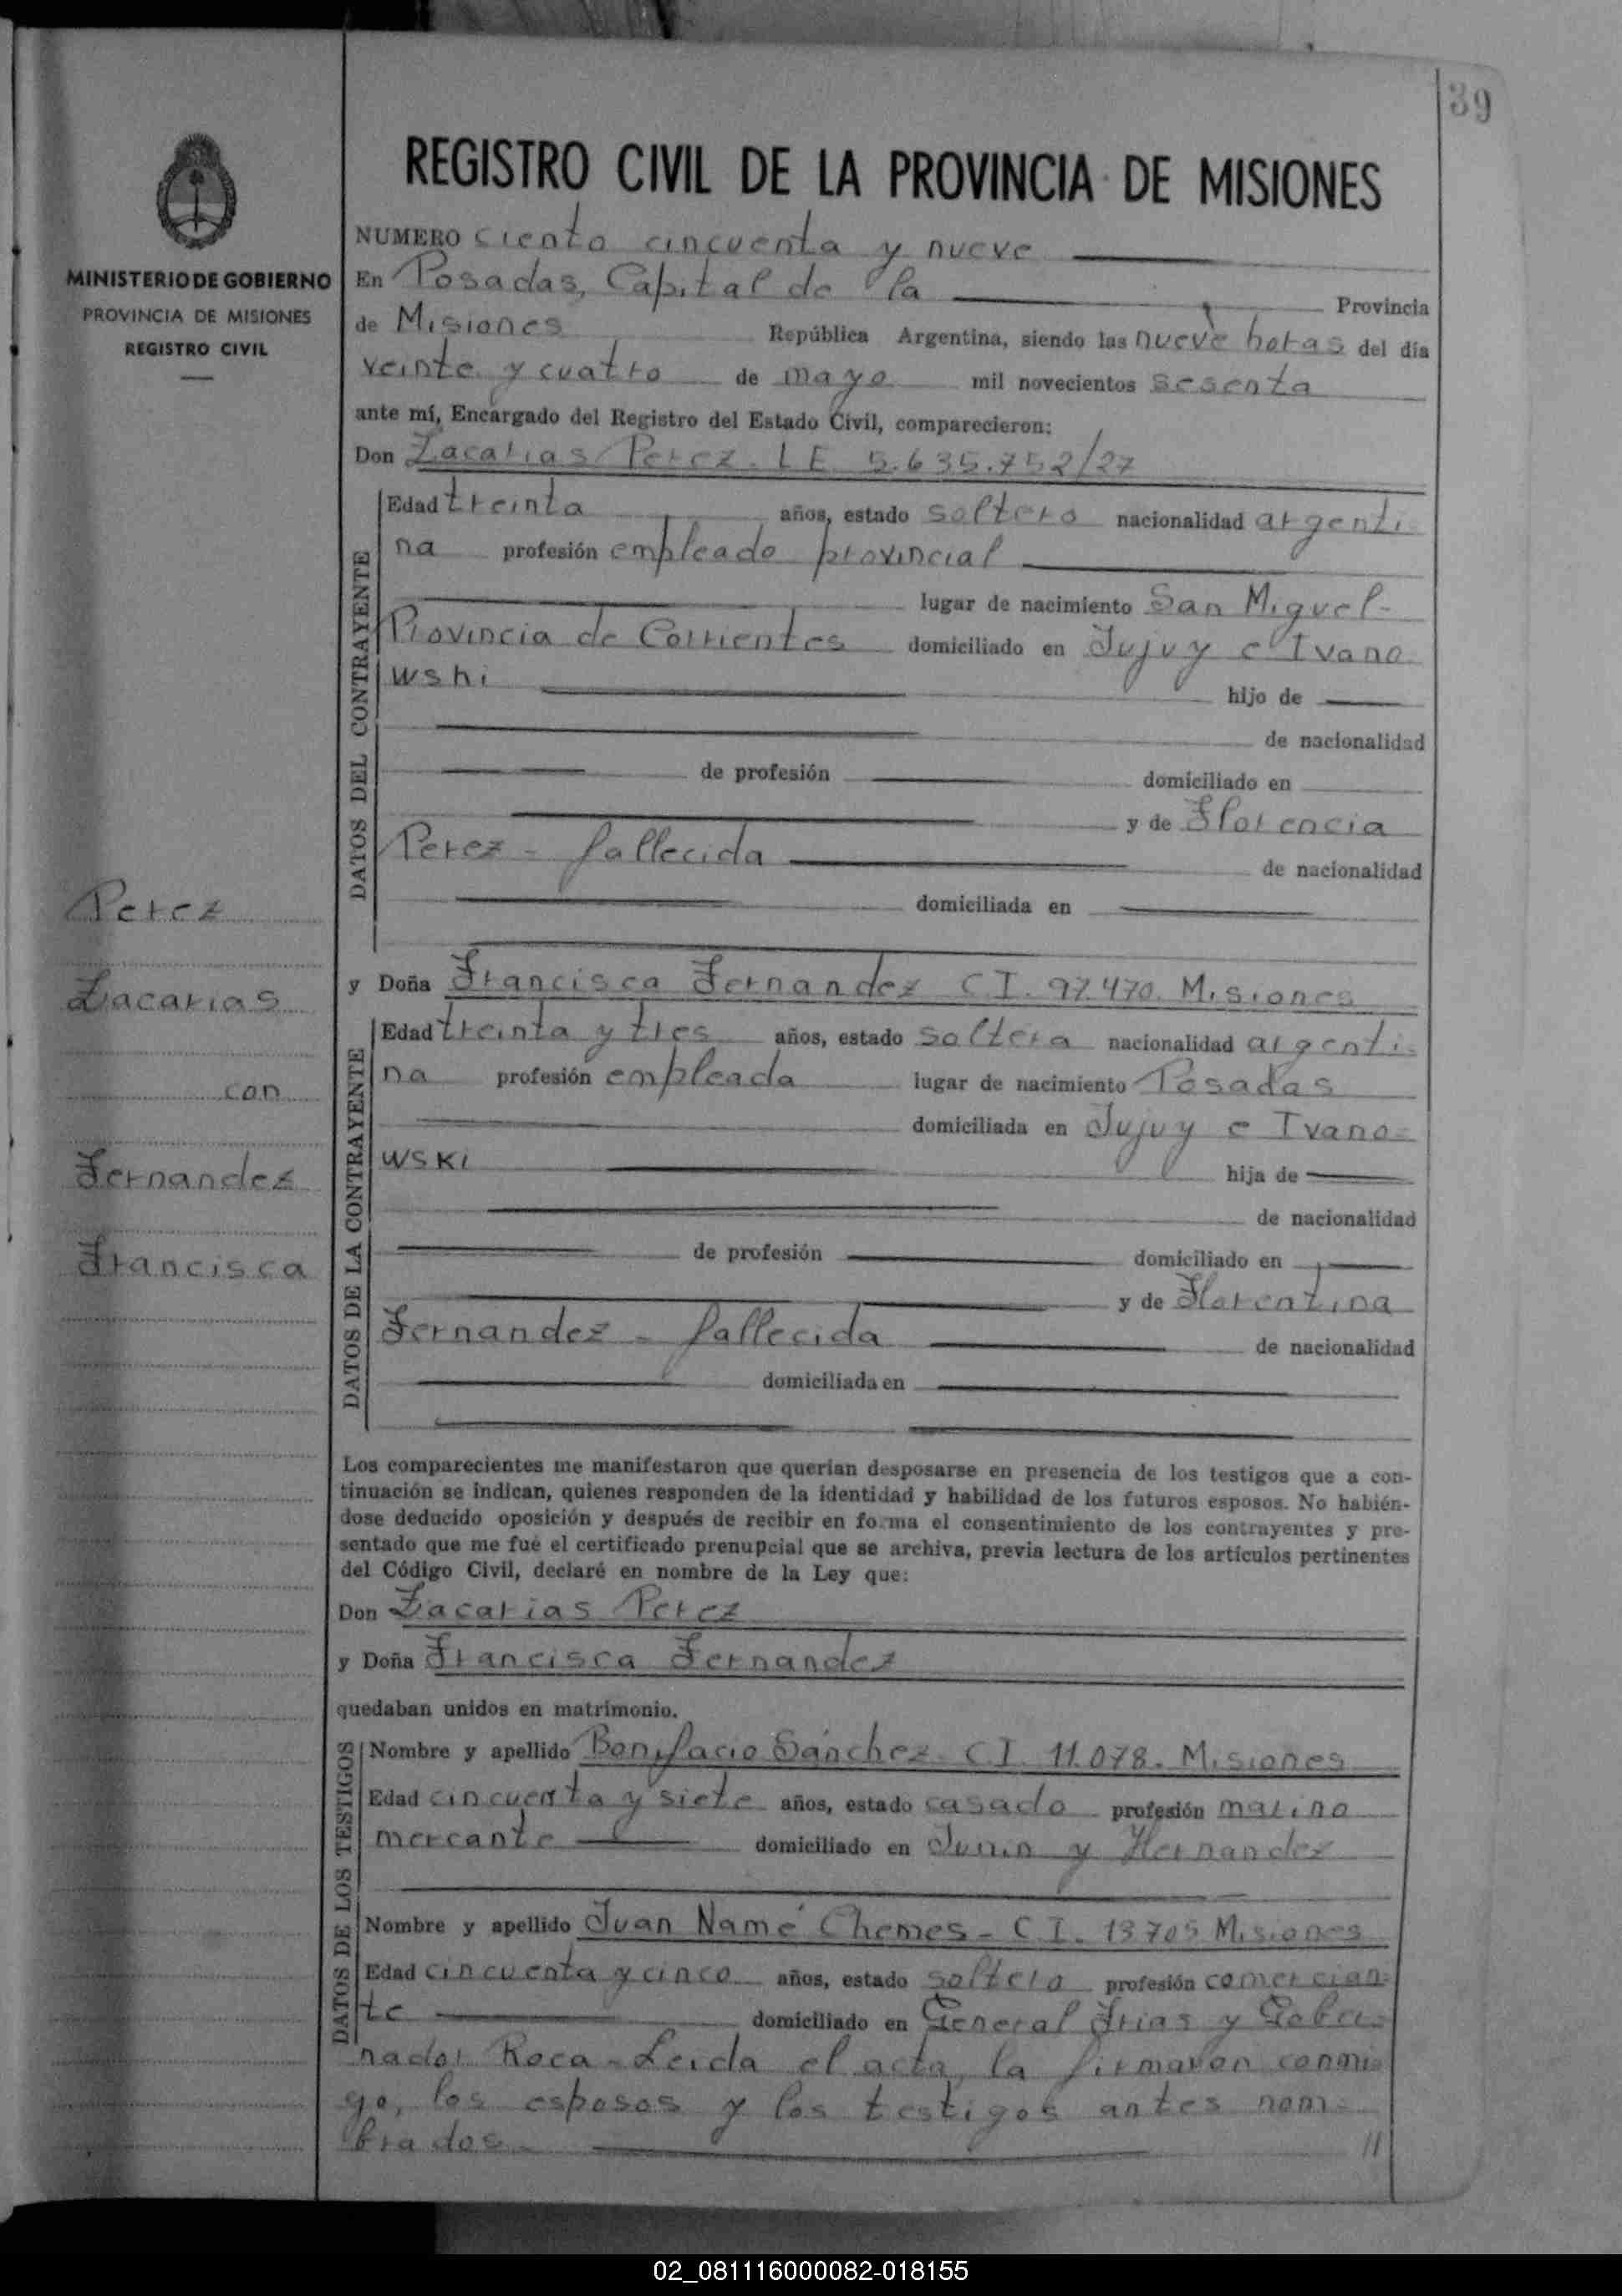 39
MINISTERIO DE GOBIERNO
PROVINCIA DE MISIONES
REGISTRO CIVIL
Perez
Zacarias
con
Fernandez
Francisca
REGISTRO CIVIL DE LA PROVINCIA DE MISIONES
NUMERO ciento cincuenta y nueve
En Posadas, Capital de la Provincia
de Misiones República Argentina, siendo las nueve horas del día
veinte y cuatro de mayo mil novecientos sesenta
ante mí, Encargado del Registro del Estado Civil, comparecieron:
Don Zacarias Perez. LE 5.635.752/27
DATOS DEL CONTRAYENTE
Edad treinta años, estado soltero nacionalidad argenti-
na profesión empleado provincial
lugar de nacimiento San Miguel-
Provincia de Corrientes domiciliado en Jujuy e Ivano
wski hijo de
de nacionalidad
de profesión domiciliado en
y de Florencia
Perez - fallecida de nacionalidad
domiciliada en
y Doña Francisca Fernandez CI. 97.470. Misiones
DATOS DE LA CONTRAYENTE
Edad treinta y tres años, estado soltera nacionalidad argenti-
na profesión empleada lugar de nacimiento Posadas
domiciliada en Jujuy e Ivano-
wski hija de
de nacionalidad
de profesión domiciliado en
y de Florentina
Fernandez - fallecida de nacionalidad
domiciliada en
Los comparecientes me manifestaron que querían desposarse en presencia de los testigos que a con-
tinuación se indican, quienes responden de la identidad y habilidad de los futuros esposos. No habién-
dose deducido oposición y después de recibir en forma el consentimiento de los contrayentes y pre-
sentado que me fué el certificado prenupcial que se archiva, previa lectura de los artículos pertinentes
del Código Civil, declaré en nombre de la Ley que:
Don Zacarias Perez
y Doña Francisca Fernandez
quedaban unidos en matrimonio.
DATOS DE LOS TESTIGOS
Nombre y apellido Bonifacio Sánchez - CI. 11.078. Misiones
Edad cincuenta y siete años, estado casado profesión marino
mercante domiciliado en Junin y Hernandez
Nombre y apellido Juan Namé Chemes - C.I. 13705 Misiones
Edad cincuenta y cinco años, estado soltero profesión comercian-
te domiciliado en General Frias y Gober-
nador Roca - Leida el acta, la firmaron conmi-
go, los esposos y los testigos antes nom-
brados. - //
02_081116000082-018155